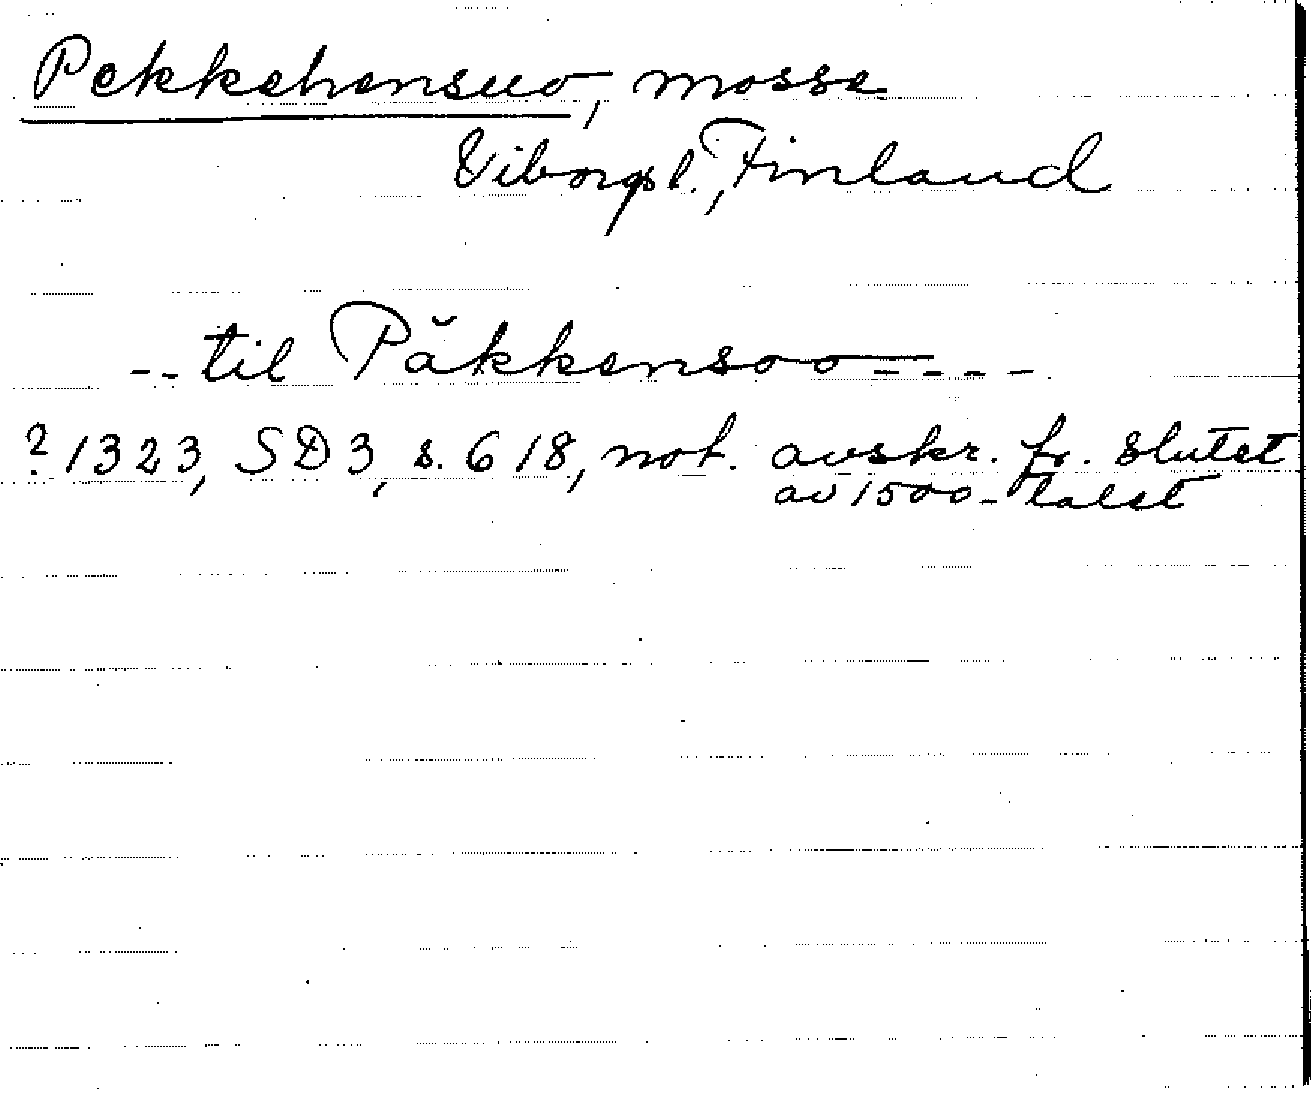 Pekkehensuo, mosse
Viborgs l., Finland
-- til Påkkensoo ----
? 1323, SD 3, s. 618, not. avskr. fr. slutet
av 1500-talet